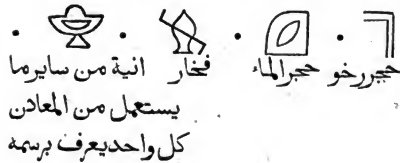 حجر رخو حجر الماء فخار انية من ساير ما
يستعمل من المعادن
كل واحد يعرف برسمه